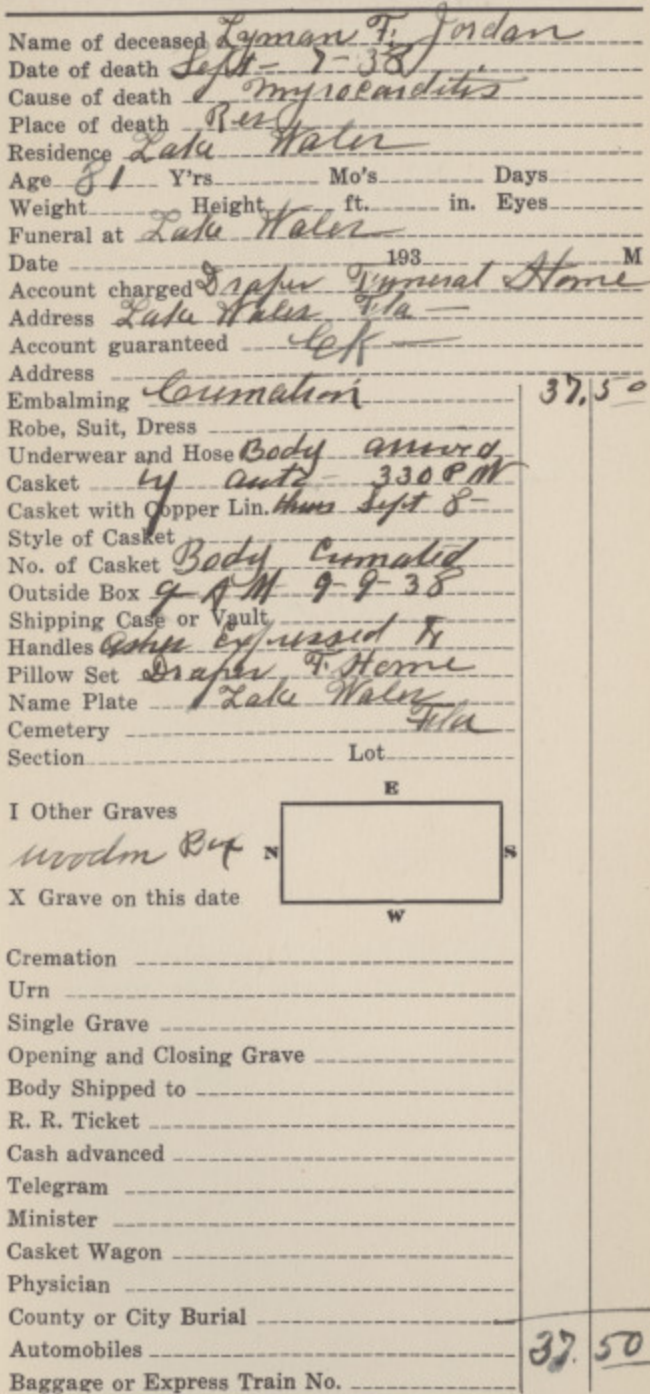 Name of deceased Lyman F. Jordan
Date of death Sept- 7-38
Cause of death Myrocarditis
Place of death Res
Residence Lake Wales
Age 81 Y'rs Mo's Days
Weight Height ft. in. Eyes
Funeral at Lake Wales
Date 193 M
Account charged Draper Funeral Home
Address Lake Wales Fla —
Account guaranteed CK —
Address
Embalming Cremation 37.50
Robe, Suit, Dress
Underwear and Hose Body arrived
Casket by auto - 330 PM
Casket with Copper Lin. thurs Sept 8-
Style of Casket
No. of Casket Body Cremated
Outside Box 9 AM 9-9-38
Shipping Case or Vault
Handles ashes expressed to
Pillow Set Draper F. Home
Name Plate Lake Wales
Cemetery Fla
Section Lot
E
I Other Graves
wooden Box N S
X Grave on this date
W
Cremation
Urn
Single Grave
Opening and Closing Grave
Body Shipped to
R. R. Ticket
Cash advanced
Telegram
Minister
Casket Wagon
Physician
County or City Burial
Automobiles 37.50
Baggage or Express Train No.